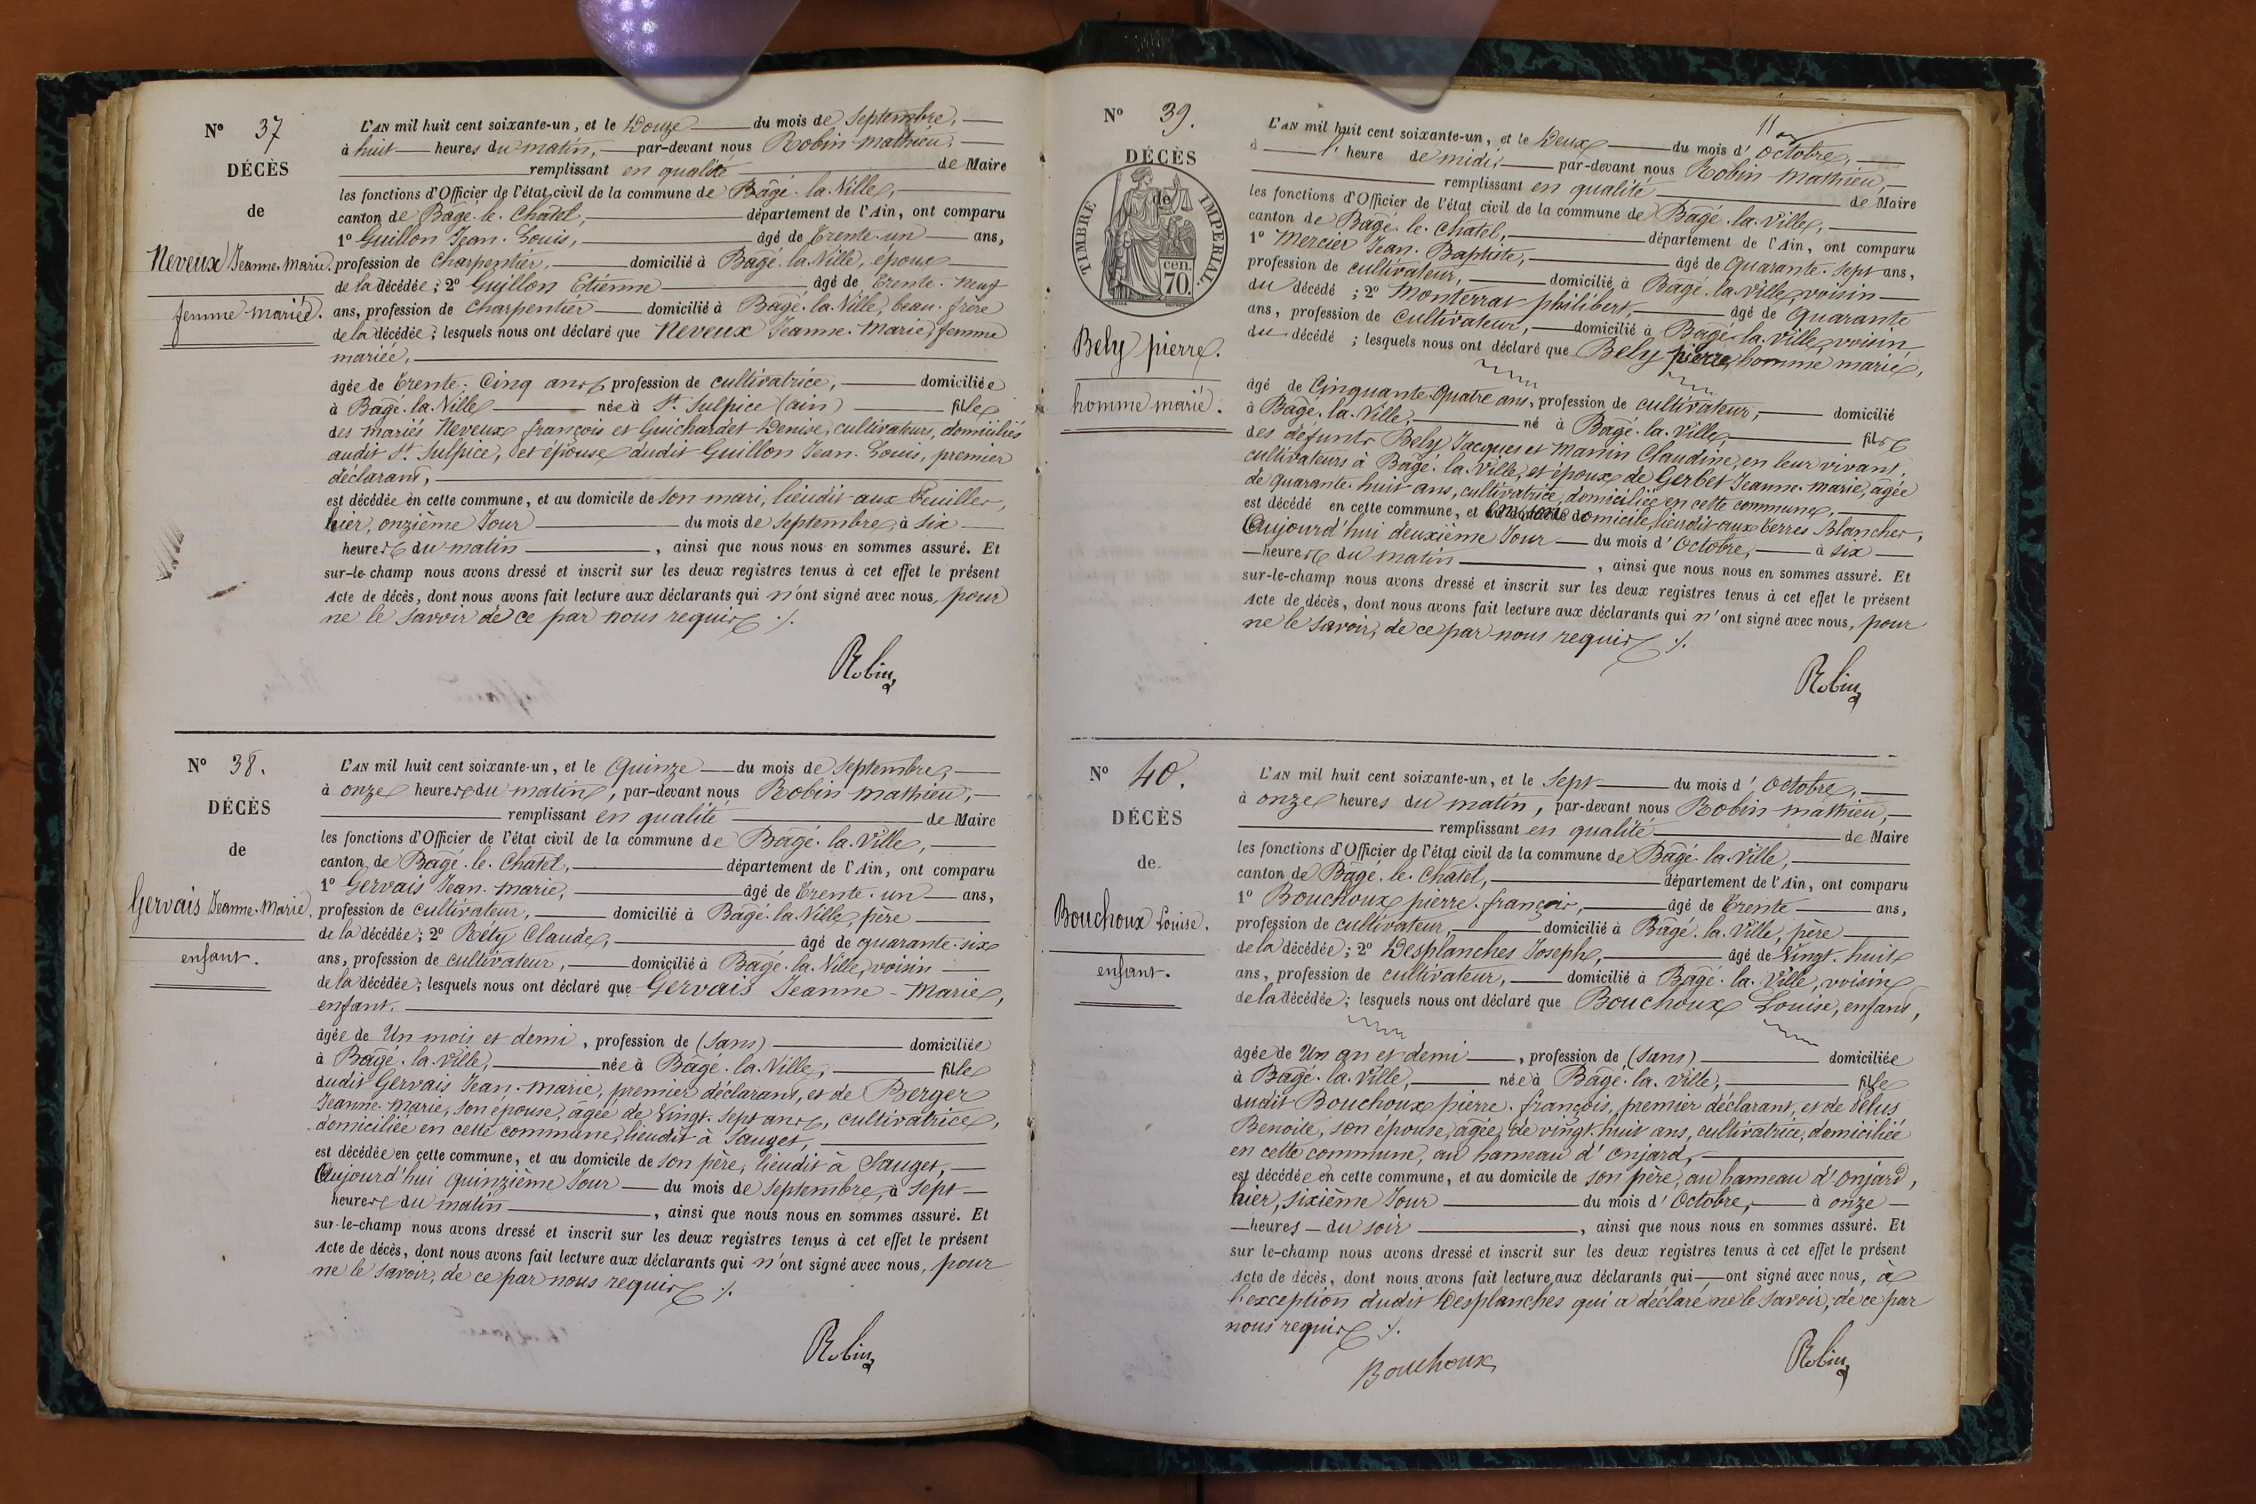 N° 37
DÉCÈS
de
Neveux Jeanne-Marie.
femme mariée.
L'AN mil huit cent soixante-un, et le Douze du mois de Septembre,
à huit heures du matin, par-devant nous Robin Mathieu,
remplissant en qualité de Maire
les fonctions d'Officier de l'état civil de la commune de Bâgé-la-Ville,
canton de Bâgé-le-Châtel, département de l'Ain, ont comparu
1° Guillon Jean-Louis, âgé de Trente-un ans,
profession de Charpentier, domicilié à Bâgé-la-Ville, époux
de la décédée; 2° Guillon Etienne âgé de Trente-neuf
ans, profession de Charpentier domicilié à Bâgé-la-Ville, beau-frère
de la décédée; lesquels nous ont déclaré que Neveux Jeanne-Marie, femme
mariée,
âgée de Trente-Cinq ans, profession de cultivatrice, domiciliée
à Bâgé-la-Ville née à St Sulpice (ain) fille
des mariés Neveux françois et Guichardet Denise, cultivateurs, domiciliés
audit St Sulpice, et épouse dudit Guillon Jean-Louis, premier
déclarant,
est décédée en cette commune, et au domicile de son mari, lieudit aux Feuilles,
hier, onzième Jour du mois de septembre, à six
heures du matin, ainsi que nous nous en sommes assuré. Et
sur-le-champ nous avons dressé et inscrit sur les deux registres tenus à cet effet le présent
Acte de décès, dont nous avons fait lecture aux déclarants qui n'ont signé avec nous, pour
ne le savoir de ce par nous requis ./.
Robin
N° 38.
DÉCÈS
de
Gervais Jeanne-Marie,
enfant.
L'AN mil huit cent soixante-un, et le Quinze du mois de Septembre,
à onze heures du matin, par-devant nous Robin Mathieu,
remplissant en qualité de Maire
les fonctions d'Officier de l'état civil de la commune de Bâgé-la-Ville,
canton de Bâgé-le-Châtel, département de l'Ain, ont comparu
1° Gervais Jean-Marie, âgé de Trente-un ans,
profession de cultivateur, domicilié à Bâgé-la-Ville, père
de la décédée; 2° Rety Claude, âgé de quarante-six
ans, profession de cultivateur, domicilié à Bâgé-la-Ville, voisin
de la décédée; lesquels nous ont déclaré que Gervais Jeanne-Marie,
enfant.
âgée de Un mois et demi, profession de (sans) domiciliée
à Bâgé-la-Ville, née à Bâgé-la-Ville, fille
dudit Gervais Jean-Marie, premier déclarant, et de Berger
Jeanne-Marie, son épouse, âgée de vingt-sept ans, cultivatrice,
domiciliée en cette commune, lieudit à Sauget,
est décédée en cette commune, et au domicile de son père, lieudit à Sauget,
Aujourd'hui quinzième Jour du mois de septembre, à sept
heures du matin, ainsi que nous nous en sommes assuré. Et
sur-le-champ nous avons dressé et inscrit sur les deux registres tenus à cet effet le présent
Acte de décès, dont nous avons fait lecture aux déclarants qui n'ont signé avec nous, pour
ne le savoir, de ce par nous requis ./.
Robin
11
N° 39.
DÉCÈS
de
TIMBRE IMPERIAL.
70. cen.
Bely pierre.
homme marié.
L'AN mil huit cent soixante-un, et le Deux du mois d'Octobre,
à l'heure de midi, par-devant nous Robin Mathieu,
remplissant en qualité de Maire
les fonctions d'Officier de l'état civil de la commune de Bâgé-la-Ville,
canton de Bâgé-le-Châtel, département de l'Ain, ont comparu
1° Mercier Jean-Baptiste, âgé de Quarante-sept ans,
profession de cultivateur, domicilié à Bâgé-la-Ville, voisin
du décédé; 2° Monterrat philibert, âgé de Quarante
ans, profession de cultivateur, domicilié à Bâgé-la-Ville, voisin
du décédé; lesquels nous ont déclaré que Bely pierre, homme marié,
âgé de Cinquante-Quatre ans, profession de cultivateur, domicilié
à Bâgé-la-Ville, né à Bâgé-la-Ville, fils
des défunts Bely Jacques et Manin Claudine, en leur vivant,
cultivateurs à Bâgé-la-Ville, et époux de Gerbet Jeanne-Marie, âgée
de quarante-huit ans, cultivatrice, domiciliée en cette commune,
est décédé en cette commune, et en son domicile, lieudit aux terres Blanches,
Aujourd'hui deuxième Jour du mois d'Octobre, à six
heures du matin, ainsi que nous nous en sommes assuré. Et
sur-le-champ nous avons dressé et inscrit sur les deux registres tenus à cet effet le présent
Acte de décès, dont nous avons fait lecture aux déclarants qui n'ont signé avec nous, pour
ne le savoir, de ce par nous requis ./.
Robin
N° 40.
DÉCÈS
de
Bouchoux Louise.
enfant.
L'AN mil huit cent soixante-un, et le Sept du mois d'Octobre,
à onze heures du matin, par-devant nous Robin Mathieu,
remplissant en qualité de Maire
les fonctions d'Officier de l'état civil de la commune de Bâgé-la-Ville,
canton de Bâgé-le-Châtel, département de l'Ain, ont comparu
1° Bouchoux pierre-françois, âgé de Trente ans,
profession de cultivateur, domicilié à Bâgé-la-Ville, père
de la décédée; 2° Desplanches Joseph, âgé de Vingt-huit
ans, profession de cultivateur, domicilié à Bâgé-la-Ville, voisin
de la décédée; lesquels nous ont déclaré que Bouchoux Louise, enfant,
âgée de Un an et demi, profession de (sans) domiciliée
à Bâgé-la-Ville, née à Bâgé-la-Ville, fille
dudit Bouchoux pierre-françois, premier déclarant, et de
Benoite, son épouse, âgée de vingt-huit ans, cultivatrice, domiciliée
en cette commune, au hameau d'Onjard,
est décédée en cette commune, et au domicile de son père, au hameau d'Onjard,
hier, sixième Jour du mois d'Octobre, à onze
heures du soir, ainsi que nous nous en sommes assuré. Et
sur le-champ nous avons dressé et inscrit sur les deux registres tenus à cet effet le présent
Acte de décès, dont nous avons fait lecture aux déclarants qui ont signé avec nous, à
l'exception dudit Desplanches qui a déclaré ne le savoir, de ce par
nous requis ./.
Bouchoux Robin